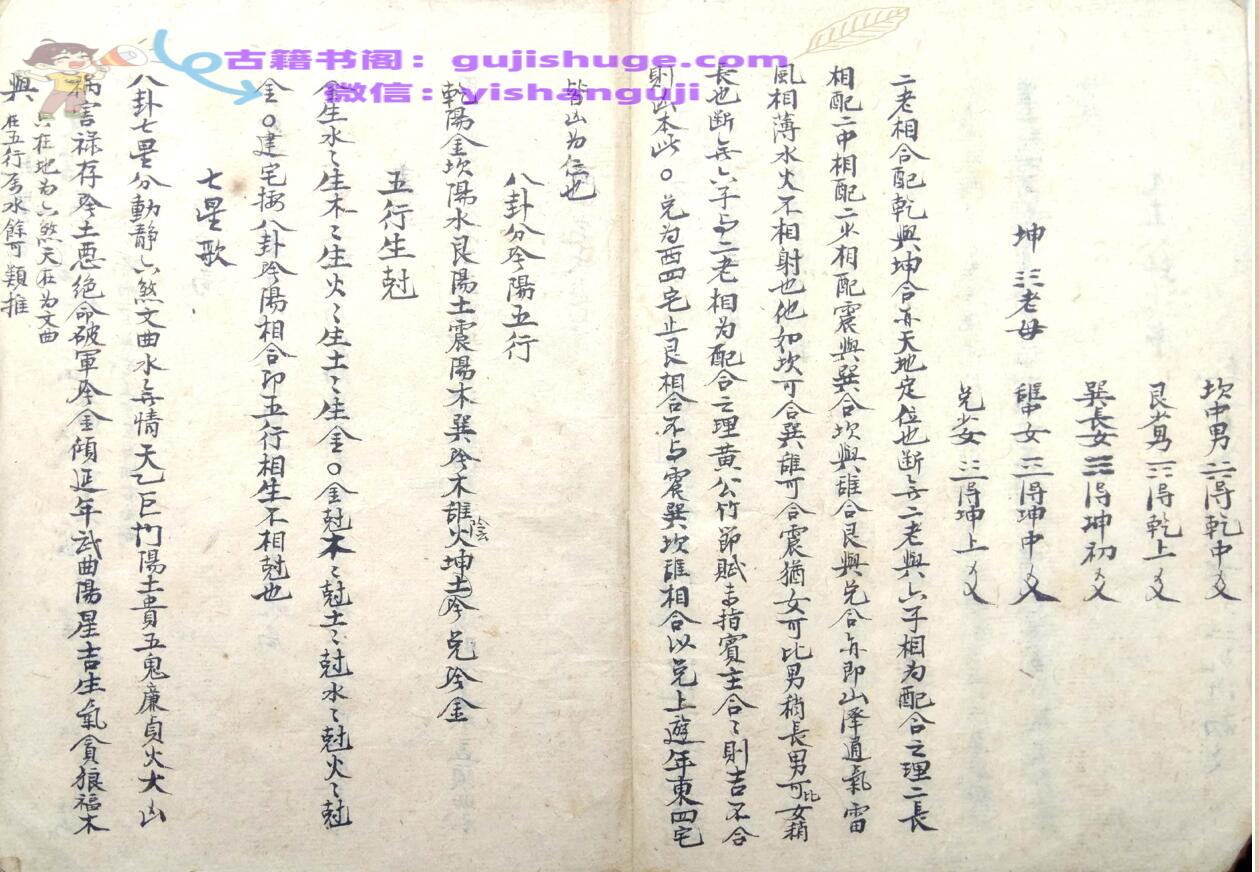 古籍书阁：gujishuge.com
微信：yishanguji
坎中男☵得乾中爻
艮少男☶得乾上爻
巽長女☴得坤初爻
離中女☲得坤中爻
兌少女☱得坤上爻
坤☷老母
二老相合配乾與坤合亦天地定位也断無二老與六子相为配合之理二長
相配二中相配二少相配震與巽合坎與離合艮與兌合亦即山澤通氣雷
風相薄水火不相射也他如坎可合巽離可合震猶女可比男稍長男可比女稍
長也断無六子与二老相为配合之理黄公竹節賦未指賓主合〻則吉不合
則凶本此〇兌为西四宅止艮相合不与震巽坎離相合以兌上遊年東四宅
皆凶为位也
八卦分阴陽五行
乾陽金坎陽水艮陽土震陽木巽阴木離陰火坤土阴兌阴金
五行生尅
金生水〻生木〻生火〻生土〻生金〇金尅木〻尅土〻尅水〻尅火〻尅
金〇建宅按八卦阴陽相合即五行相生不相尅也
七星歌
八卦七星分動静六煞文曲水無情天乙巨门陽土貴五鬼廉貞火大凶
祸害禄存阴土惡絶命破軍阴金傾延年武曲陽星吉生氣貪狼福木
興 只在地为六煞天在为文曲
在五行属水餘可類推